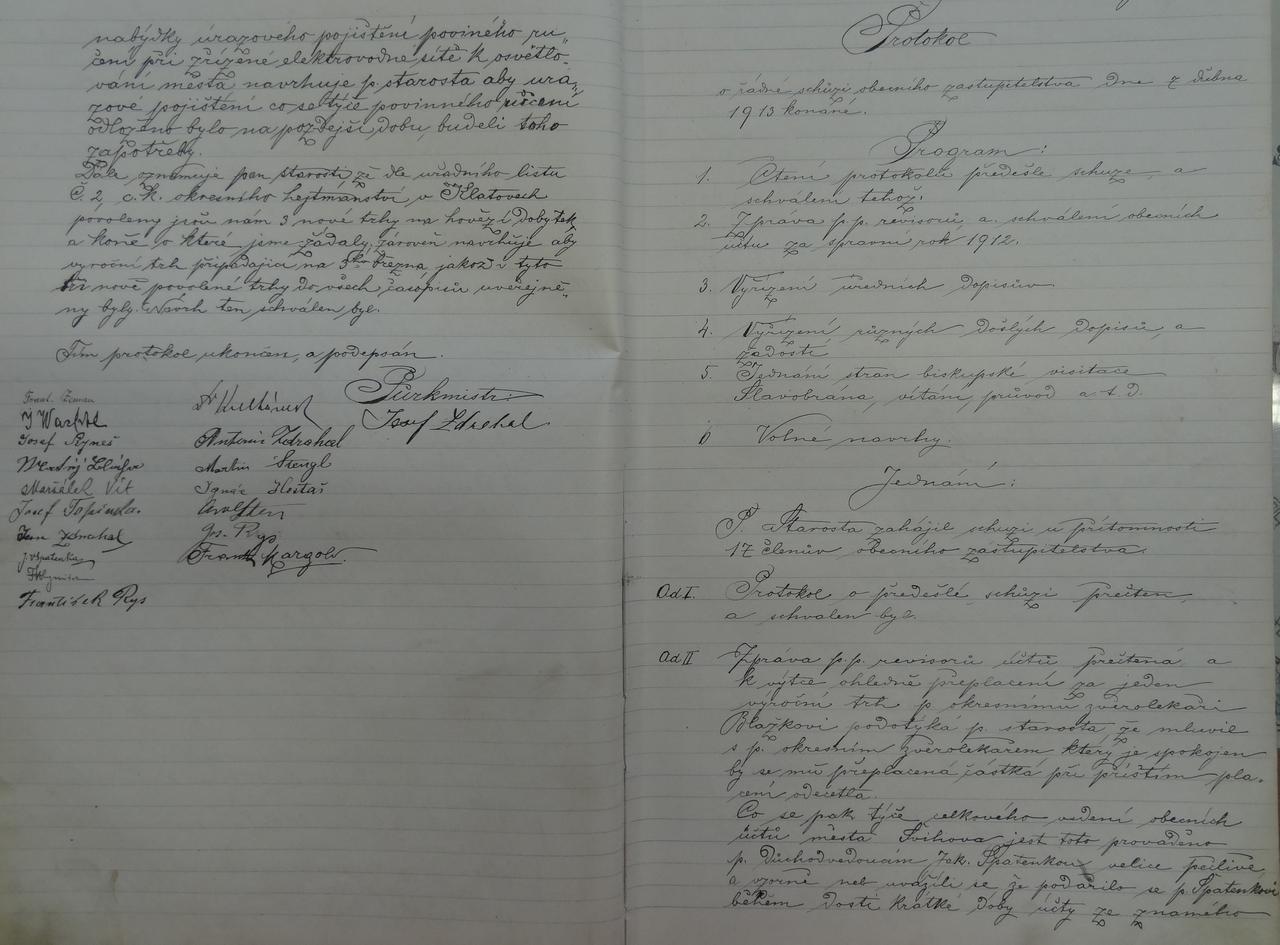 nabýdky úrazového pojištění poviného ru„
čení při zřízené elektrovodné sítě k osvětlo-
vání města navrhuje p. starosta aby úra-
zové pojištění co se týče povinného ručení
odloženo bylo na pozdější dobu, budeli toho
zapotřeby.
Dále oznamuje pan starosta že dle uřadního listu
Č. 2, c. k. okresního hejtmanství v Klatovech
povoleny jsou nám 3 nové trhy na hovězí dobytek
a koně o které jsme žádaly, zároveň navrhuje aby
vyroční trh připadající na 3ho března jakož i tyto
tři nově povolené trhy do všech časopisů uveřejně„
ny byly. Návrh ten schválen byl.
Tím protokol ukončen, a podepsán.
Purkmistr:
Josef Zdrahal
Frant. Zeman
J Wachtl
Josef Ryneš
Maršálek Vít
Josef Topinka.
Jan Zdrahal
J. Špatenka
František Rys
Antonín Zdrahal
Martin Štengl
Ignác Hostaš
Jos. Rys
Frant. Margold
Protokol
o řádné schůzi obecního zastupitelstva dne 7 dubna
1913 konané.
Program:
1. Čtení protokolu předešlé schuze, a
schválení tehož.
2. Zpráva p.p. revisorů, a schválení obecních
účtu za spravní rok 1912.
3. Vyřízení uředních dopisův
4. Vyřízení různých došlých dopisů, a
žadostí
5. Jednání stran biskupské visitace
Slavobrána, vítání, průvod a. t. d.
6 Volné navrhy.
Jednání:
P. Starosta zahájil schuzi u přítomnosti
17 členův obecního zástupitelstva.
Ad I. Protokol o předešlé schůzi přečten,
a schvalen byl.
Ad II Zpráva p.p. revisorů účtů přečtená a
k výtce ohledně přeplacení za jeden
výroční trh p. okresnímu zvěrolekaři
Blažkovi podotýká p. starosta, že mluvil
s p. okresním zvěrolekařem který je spokojen
by se mu přeplacená částka při příštím pla-
cení odečetla.
Co se pak týče celkového vedení obecních
účtů města Švihova jest toto prováděno
p. Důchodvedoucím Jak. Špatenkou velice pečlivě
a vzorně neb uvážíli se že podařilo se p. Špatenkovi
během dosti krátké doby účty ze známého